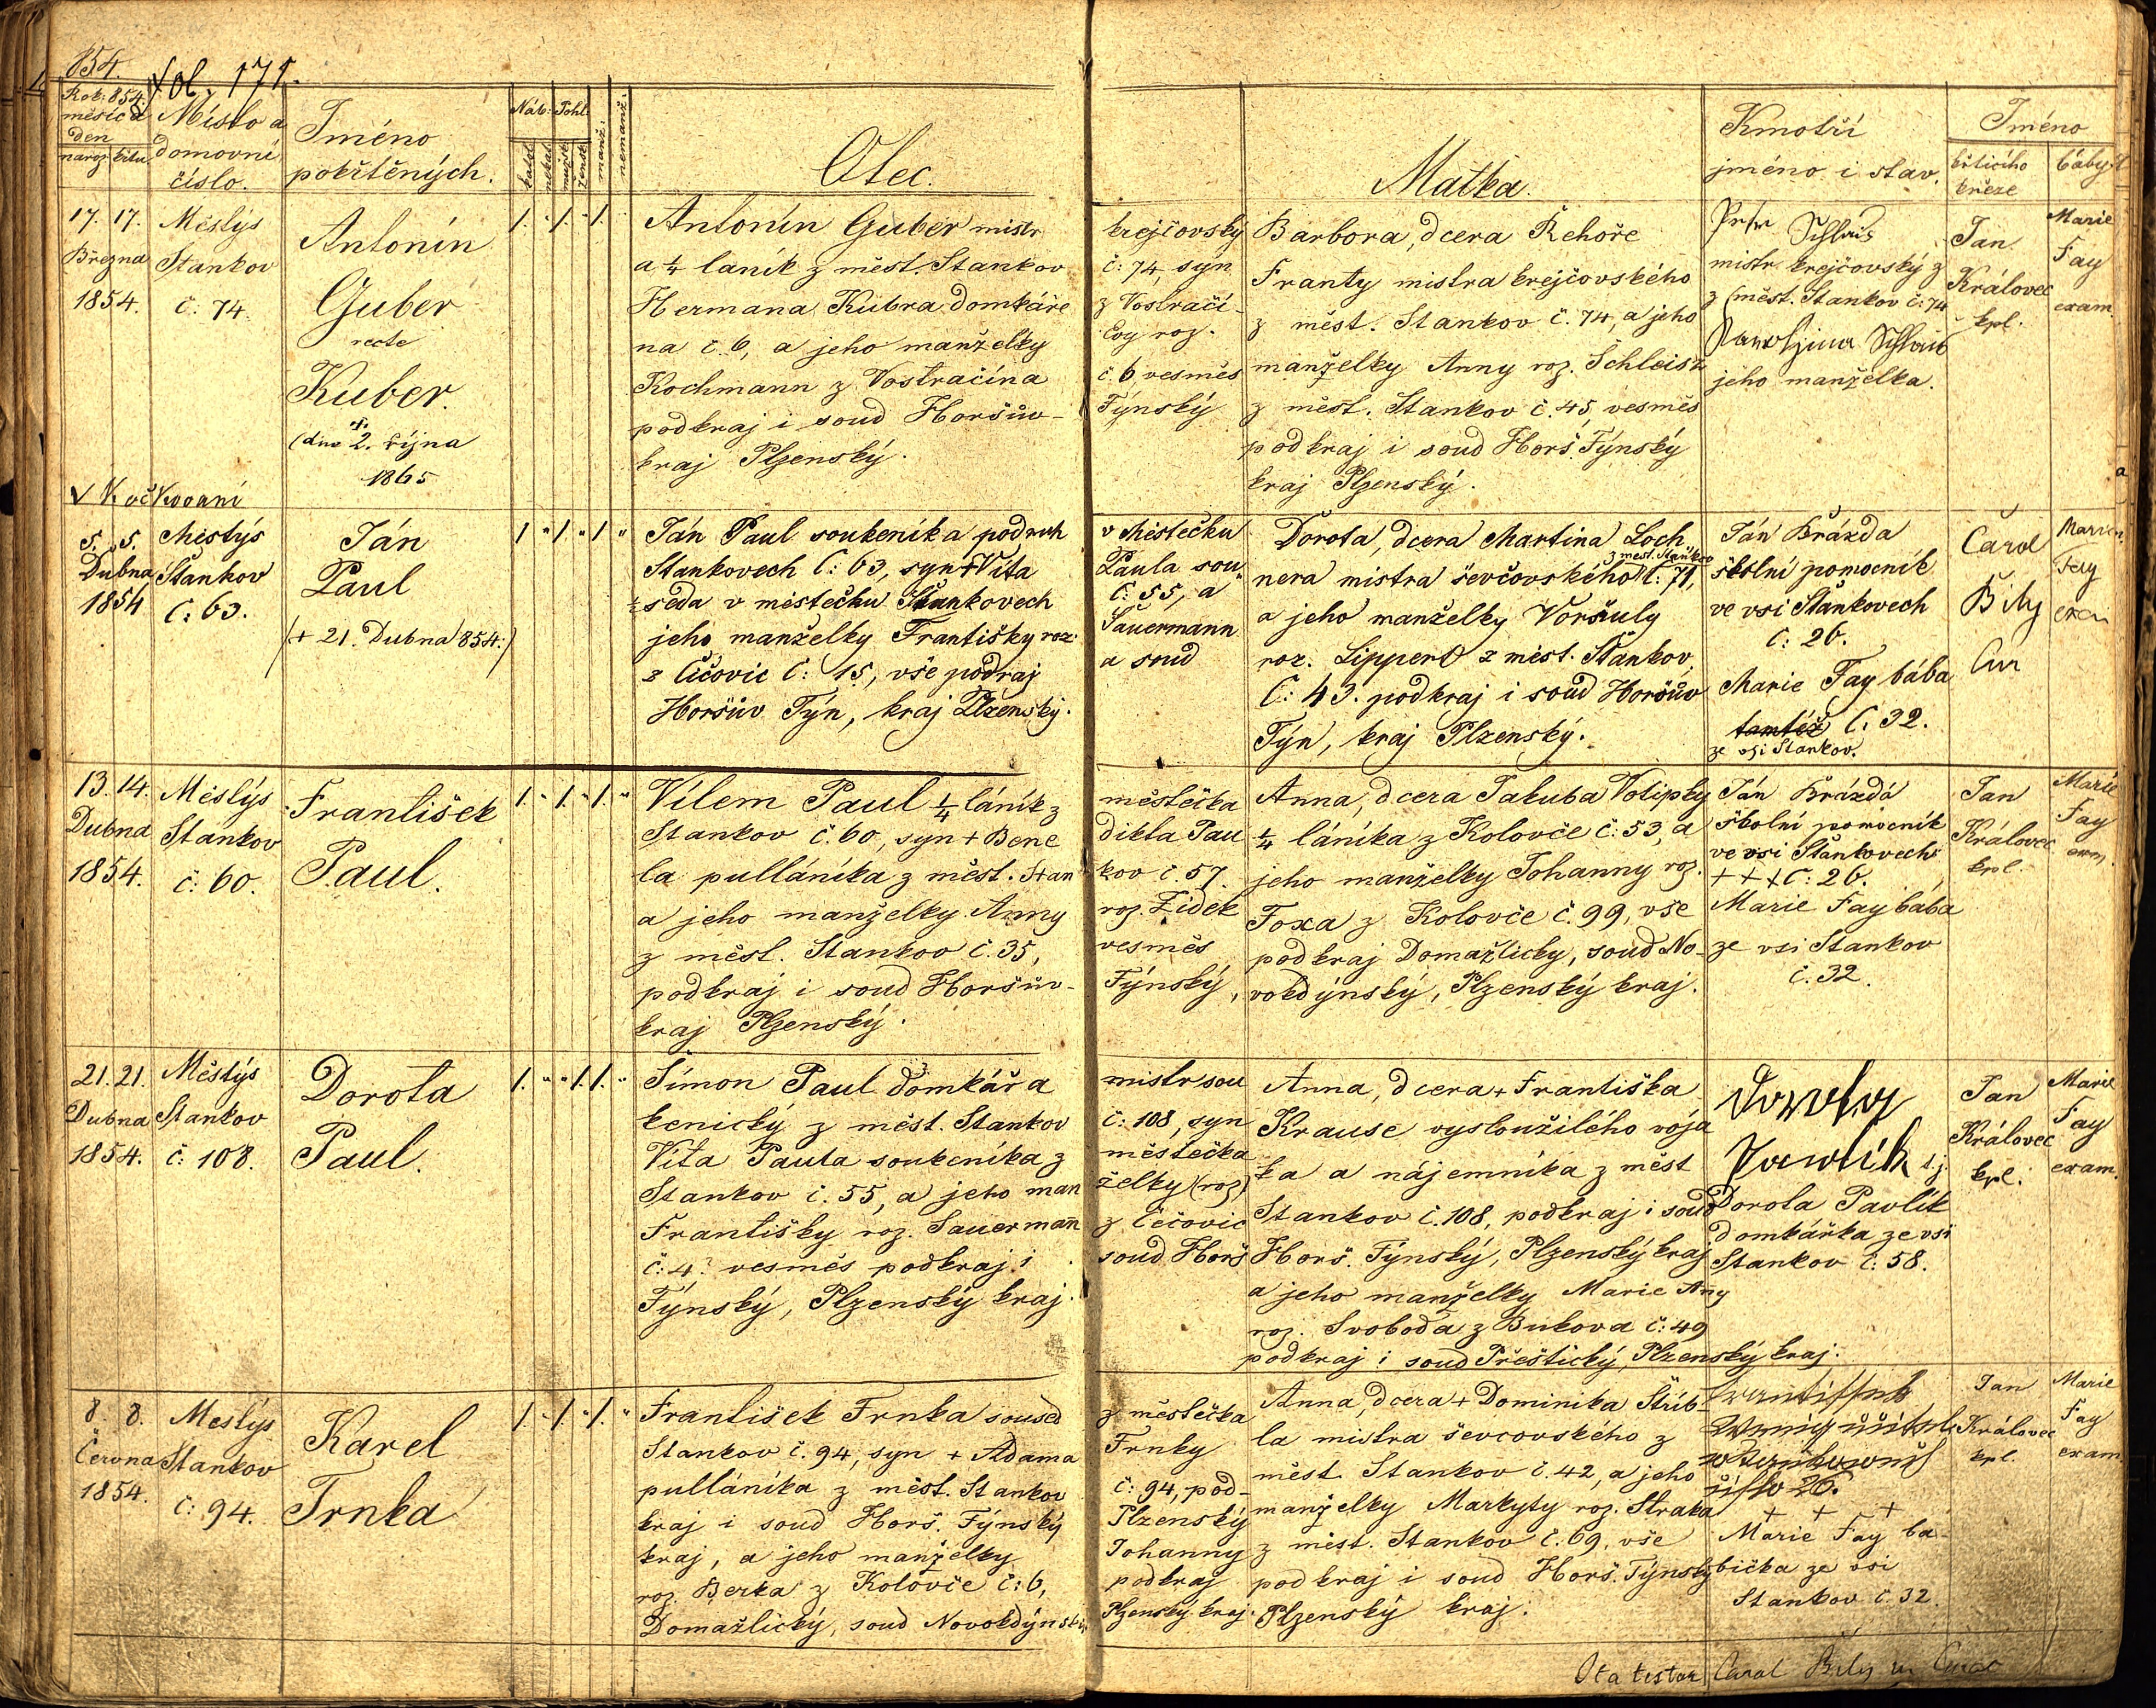 854.
Fol. 171.
Rok: 854.
měsíc a
den
naroz. křtu
Místo a
domovní
číslo.
Jméno
pokřtěných.
Náb: Pohl:
katol.
nekat.
mužsk.
žensk.
manž.
nemanž.
Otec.
Matka.
Kmotři
jméno i stav.
Jméno
křticího
kněze
báby
17. 17.
Března
1854.
Městýs
Stankov
č: 74.
Antonín
Guber
recte
Kuber.
(dno 2. října
1865
V K očkování
1. " 1. " 1. "
Antonín Guber mistr
a ¼ laník z měst. Stankov
Hermana Kubra domkáře
na č. 6, a jeho manželky
Kochmann z Vostračína
podkraj i soud Horšův-
kraj Plzenský.
krejčovský
č: 74, syn
z Vostračí-
Evy roz.
č. 6 vesměs
Týnský
Barbora, dcera Řehoře
Franty mistra krejčovského
z měst. Stankov č. 74, a jeho
manželky Anny roz. Schleis
z měst. Stankov č. 45, vesměs
podkraj i soud Horš. Týnský
kraj Plzenský.
mistr krejčovský z
z měst. Stankov č: 74
jeho manželka.
Jan
Královec
kpl.
Marie
Fay
exam
5. 5.
Dubna
1854
Městýs
Štankov
č: 63.
Ján
Paul
(+ 21. Dubna 854.)
1 " 1. " 1 "
Ján Paul soukeníka podruh
Stankovech č: 63, syn + Víta
seda v městečku Štankovech
jeho manželky Františky roz:
z Čičovic č: 15, vše podraj
Horšův Týn, kraj Plzenský.
v Městečku
Paula sou
č: 55, a
Sauermann
a soud
Dorota, dcera Martina Loch
z měst. Štankov
nera mistra ševčovského č: 71,
a jeho manželky Voršuly
roz. Lippert z měst. Štankov.
č: 43. podkraj i soud Horšův
Týn, kraj Plzenský.
Ján Brázda
školní pomocník
ve vsi Štankovech
č: 26.
Marie Fay bába
tamtéž č: 32.
ze vsi Stankov.
Carol
Bily
Cur
Marie
Fay
13. 14.
Dubna
1854.
Městýs
Stankov
č: 60.
František
Paul.
1. " 1. " 1. "
Vilem Paul ¼ láník z
Stankov č. 60, syn + Bene
la pulláníka z měst. Stan
a jeho manželky Anny
z měst. Stankov č. 35,
podkraj i soud Horšův-
kraj Plzenský.
městečka
dikta Pau
kov č. 57.
roz. Zidek
vesměs
Týnský,
Anna, dcera Jakuba Votipky
¼ láníka z Kolovče č: 53, a
jeho manželky Johanny roz.
Foxa z Kolovče č. 99, vše
podkraj Domažlicky, soud No-
vokdýnský, Plzenský kraj.
Ján Brázda
školní pomocník
ve vsi Štankovech
+ + + č: 26.
Marie Fay bába
ze vsi Stankov
č. 32.
Jan
Královec
kpl.
Marie
Fay
exm.
21. 21.
Dubna
1854.
Městýs
Stankov
č: 108.
Dorota
Paul.
1. " " 1. 1. "
Šimon Paul domkář a
kenický z měst. Stankov
Víta Paula soukeníka z
Stankov č. 55, a jeho man
Františky roz. Sauermann
č: 4? vesměs podkraj i
Týnský, Plzenský kraj.
mistr sou
č: 108, syn
městečka
želky (roz)
z Čečovic
soud Horš
Anna, dcera + Františka
Krause vysloužilého voja
ka a nájemníka z měst
Stankov č. 108, podkraj i soud
Horš. Týnský, Plzenský kraj
a jeho manželky Marie Any
roz. Svoboda z Bukova č: 49
podkraj i soud Přeštický, Plzenský kraj.
t. j.
Dorota Pavlik
domkářka ze vsi
Stankov č: 58.
Jan
Královec
kpl.
Marie
Fay
exam.
8. 8.
Června
1854.
Městýs
Stankov
č: 94.
Karel
Trnka
1. " 1. " 1. "
František Trnka soused
Stankov č. 94, syn + Adama
pulláníka z měst. Stankov
kraj i soud Horš. Týnský
kraj, a jeho manželky
roz. Berka z Kolovče č: 6,
Domažlický, soud Novokdýnský
z městečka
Trnky
č: 94, pod-
Plzenský
Johanny
podkraj
Plzenský kraj.
Anna, dcera + Dominika Štrib-
la mistra ševcovského z
měst. Stankov č. 42, a jeho
manželky Markyty roz. Straka
z měst. Stankov č. 69, vše
podkraj i soud Horš. Týnský
Plzenský kraj.
+ + +
Marie Fay ba-
bička ze vsi
Stankov č. 32.
Jan
Královec
kpl.
Marie
Fay
exam
Ita testor Carol Bily